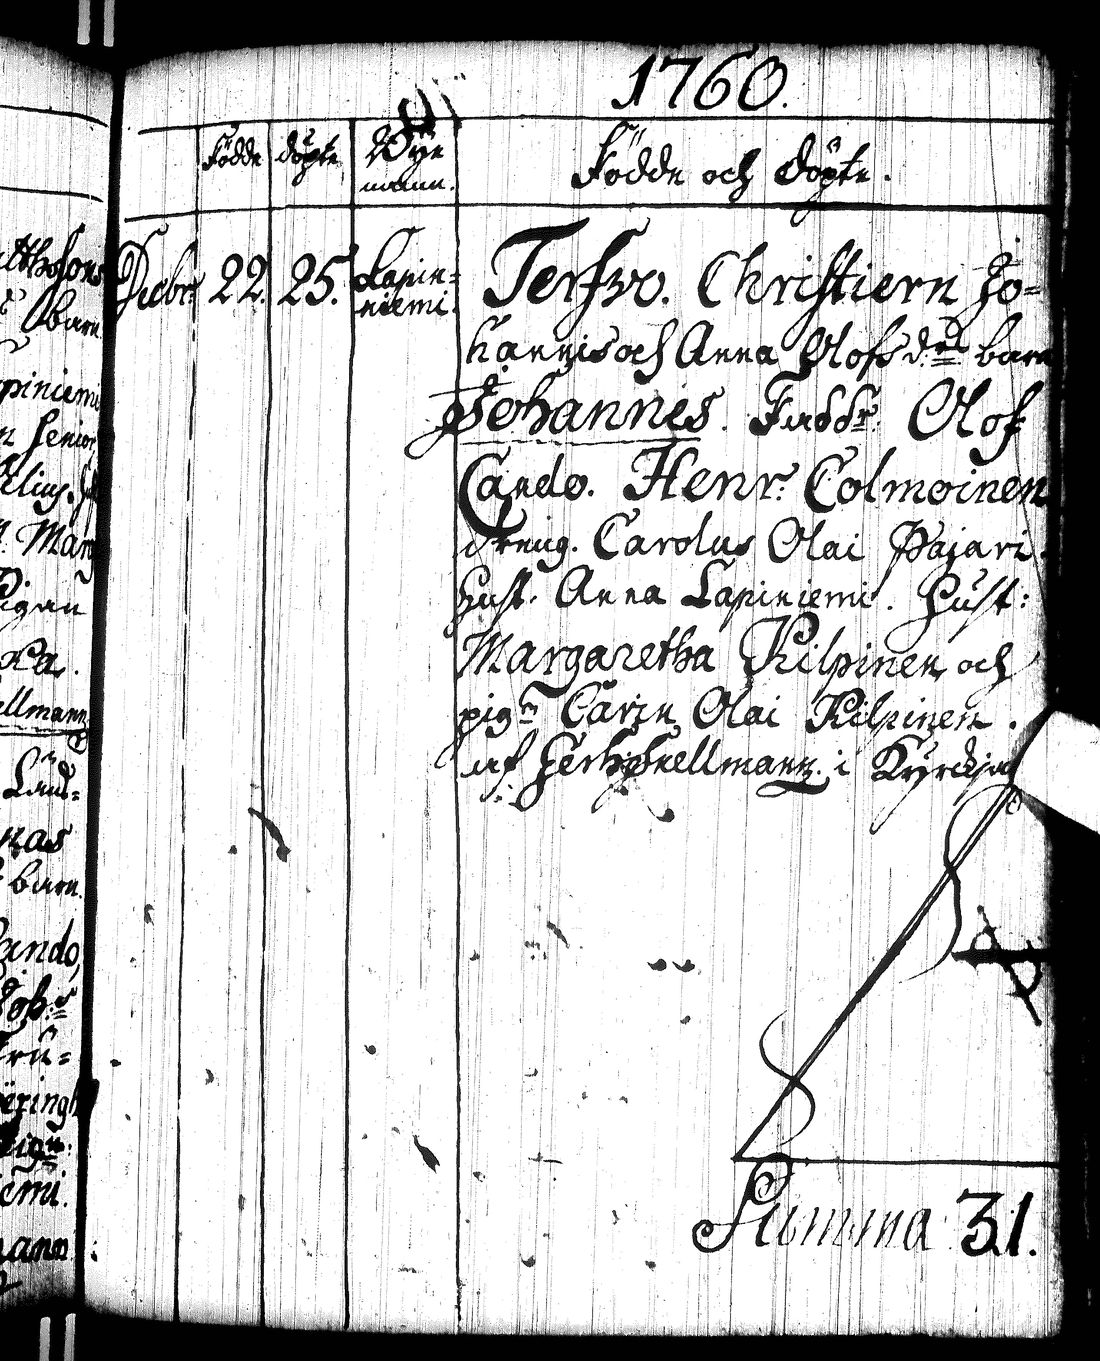 1760.
Födde döpte Byenamn. Födde och döpte.
Decbr: 22. 25. Lapin=
niemi.
Terfwo. Christiern Jo=
hannis och Anna Olofs d:r barn
Johannes. Faddr: Olof
Cando. Henr: Colmoinen
dreng. Carolus Olai Pajari.
Hust. Anna Lapiniemi. Hust:
Margaretha Kilpinen och
pig:n Carin Olai Kilpinen.
af Her Snellmann i Kyrckja
Summa 31.
atthsons
barn
piniemi
n Senior
Elius.
Mar
Pigan
Ka.
ellmann
Land=
nas
barn.
ando,
Joh:s
Tru=
eringh
pig:n
iemi.
mann